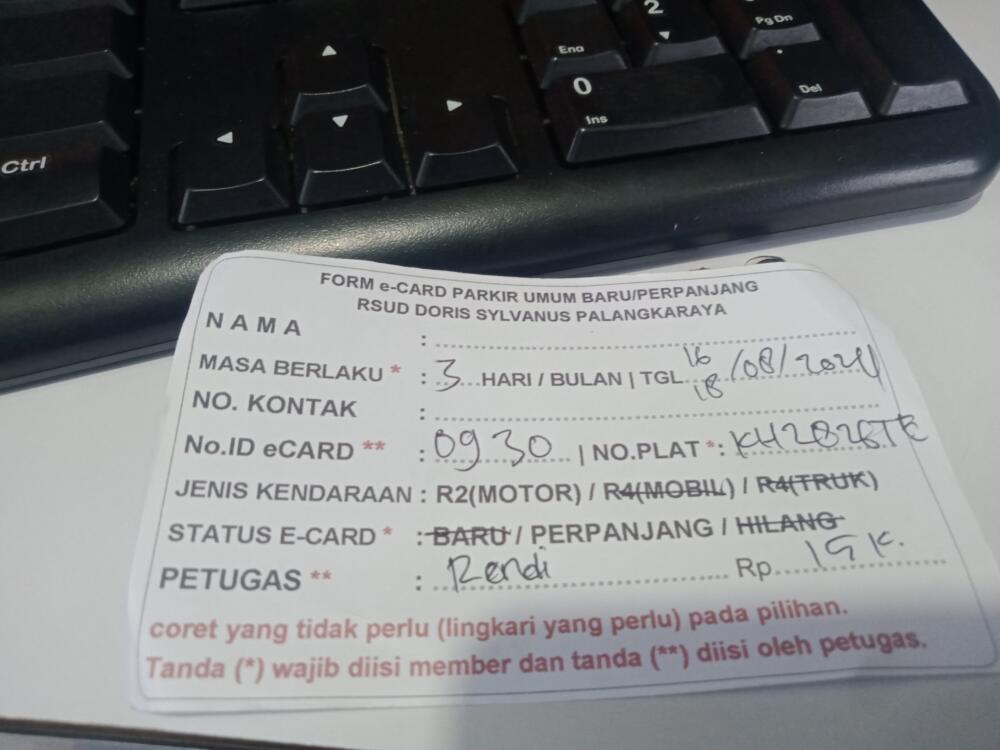 2
Pg Dn
0
Ins
Del
Ctrl
FORM e-CARD PARKIR UMUM BARU/PERPANJANG
RSUD DORIS SYLVANUS PALANGKARAYA
NAMA :
MASA BERLAKU * : 3 HARI / BULAN | TGL 16 18 /08/2024
NO. KONTAK :
No.ID eCARD ** : 0930 | NO.PLAT *: KH2826TE
JENIS KENDARAAN : R2(MOTOR) / R4(MOBIL) / R4(TRUK)
STATUS E-CARD * : BARU / PERPANJANG / HILANG
PETUGAS ** : Rendi Rp
coret yang tidak perlu (lingkari yang perlu) pada pilihan.
Tanda (*) wajib diisi member dan tanda (**) diisi oleh petugas.